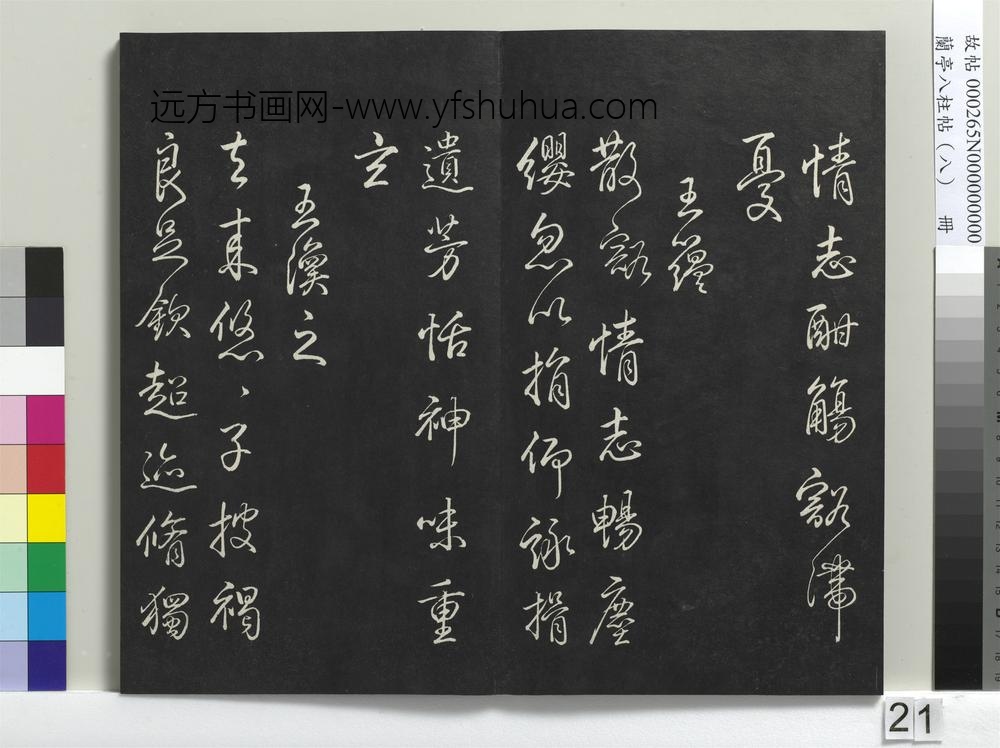 故帖 000265N000000000
蘭亭八柱帖（八） 冊
远方书画网-www.yfshuhua.com
情志酣觴豁滯
憂
王蘊
散豁情志暢塵
纓忽以捐仰詠揖
遺芳恬神味重
玄
王渙之
去來悠〻子披褐
良足欽超迹脩獨
21